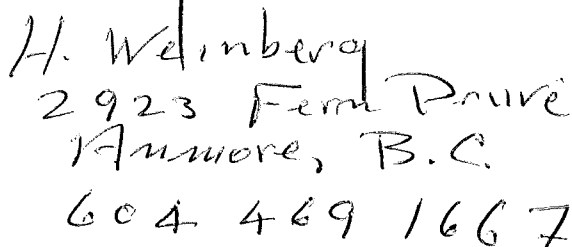 H. Weinberg
2923 Fern Drive
Anmore, B.C.
604 469 1667